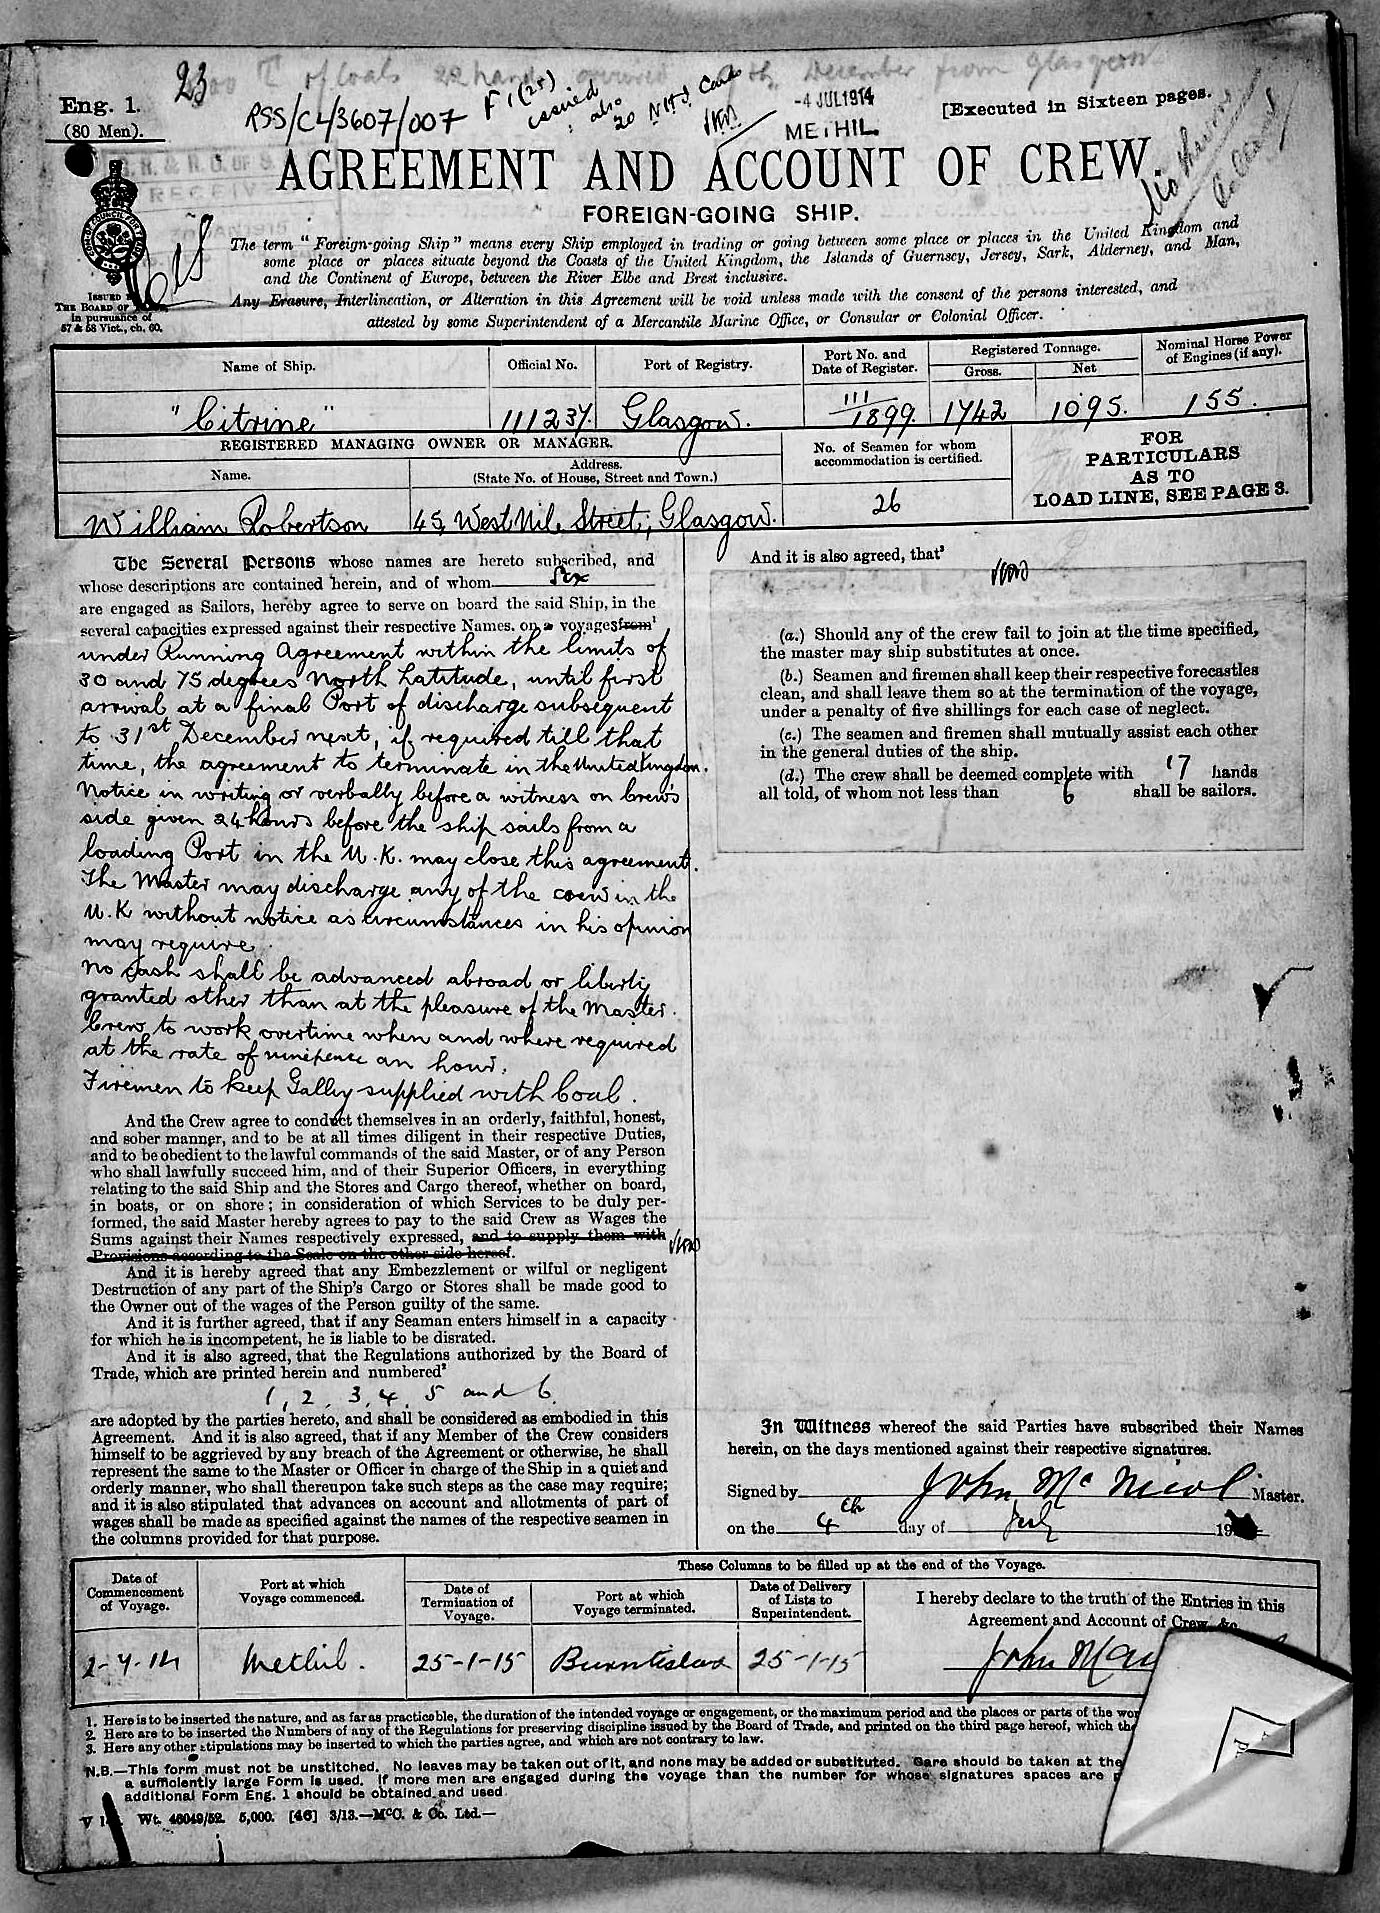 23
of Coals 22 hands December from Glasgow
Eng. 1.
(80 Men).
RSS/CL/3607/007
F 1 (25)
issued
also
20 Cards
-4 JUL 1914
METHIL
[Executed in Sixteen pages.
RECEIV
AGREEMENT AND ACCOUNT OF CREW.
FOREIGN-GOING SHIP.
The term "Foreign-going Ship" means every Ship employed in trading or going between some place or places in the United Kingdom and
some place or places situate beyond the Coasts of the United Kingdom, the Islands of Guernsey, Jersey, Sark, Alderney, and Man,
and the Continent of Europe, between the River Elbe and Brest inclusive.
Any Erasure, Interlineation, or Alteration in this Agreement will be void unless made with the consent of the persons interested, and
attested by some Superintendent of a Mercantile Marine Office, or Consular or Colonial Officer.
ISSUED
THE BOARD OF
in pursuance of
57 & 58 Vict., ch. 60.
Name of Ship.
Official No.
Port of Registry.
Port No. and
Date of Register.
Registered Tonnage.
Gross.
Net
Nominal Horse Power
of Engines (if any).
"Citrine"
111237.
Glasgow.
111/1899
1742
1095.
155.
REGISTERED MANAGING OWNER OR MANAGER.
Name.
Address.
(State No. of House, Street and Town.)
No. of Seamen for whom
accommodation is certified.
FOR
PARTICULARS
AS TO
LOAD LINE, SEE PAGE 3.
William Robertson
45, West Nile Street, Glasgow.
26
The Several Persons whose names are hereto subscribed, and
whose descriptions are contained herein, and of whom Six
are engaged as Sailors, hereby agree to serve on board the said Ship, in the
several capacities expressed against their respective Names, on a voyages from¹
under Running Agreement within the limits of
30 and 75 degrees North Latitude, until first
arrival at a final Port of discharge subsequent
to 31st December next, if required till that
time, the agreement to terminate in the United Kingdom.
Notice in writing or verbally before a witness on Crew's
side given 24 hours before the ship sails from a
loading Port in the U.K. may close this agreement.
The Master may discharge any of the crew in the
U.K without notice as circumstances in his opinion
may require.
No cash shall be advanced abroad or liberty
granted other than at the pleasure of the Master.
Crew to work overtime when and where required
at the rate of ninepence an hour.
Firemen to keep Galley supplied with Coal.
And the Crew agree to conduct themselves in an orderly, faithful, honest,
and sober manner, and to be at all times diligent in their respective Duties,
and to be obedient to the lawful commands of the said Master, or of any Person
who shall lawfully succeed him, and of their Superior Officers, in everything
relating to the said Ship and the Stores and Cargo thereof, whether on board,
in boats, or on shore; in consideration of which Services to be duly per-
formed, the said Master hereby agrees to pay to the said Crew as Wages the
Sums against their Names respectively expressed, and to supply them with
Provisions according to the Scale on the other side hereof.
And it is hereby agreed that any Embezzlement or wilful or negligent
Destruction of any part of the Ship's Cargo or Stores shall be made good to
the Owner out of the wages of the Person guilty of the same.
And it is further agreed, that if any Seaman enters himself in a capacity
for which he is incompetent, he is liable to be disrated.
And it is also agreed, that the Regulations authorized by the Board of
Trade, which are printed herein and numbered²
1, 2, 3, 4, 5 and 6
are adopted by the parties hereto, and shall be considered as embodied in this
Agreement. And it is also agreed, that if any Member of the Crew considers
himself to be aggrieved by any breach of the Agreement or otherwise, he shall
represent the same to the Master or Officer in charge of the Ship in a quiet and
orderly manner, who shall thereupon take such steps as the case may require;
and it is also stipulated that advances on account and allotments of part of
wages shall be made as specified against the names of the respective seamen in
the columns provided for that purpose.
And it is also agreed, that³
(a.) Should any of the crew fail to join at the time specified,
the master may ship substitutes at once.
(b.) Seamen and firemen shall keep their respective forecastles
clean, and shall leave them so at the termination of the voyage,
under a penalty of five shillings for each case of neglect.
(c.) The seamen and firemen shall mutually assist each other
in the general duties of the ship.
(d.) The crew shall be deemed complete with 17 hands
all told, of whom not less than 6 shall be sailors.
In Witness whereof the said Parties have subscribed their Names
herein, on the days mentioned against their respective signatures.
Signed by John McNicol Master.
on the 4th day of July 19
Date of
Commencement
of Voyage.
Port at which
Voyage commenced.
These Columns to be filled up at the end of the Voyage.
Date of
Termination of
Voyage.
Port at which
Voyage terminated.
Date of Delivery
of Lists to
Superintendent.
I hereby declare to the truth of the Entries in this
Agreement and Account of Crew, &c.
2-7-14
Methil.
25-1-15
Burntisland
25-1-15
John
1. Here is to be inserted the nature, and as far as practicable, the duration of the intended voyage or engagement, or the maximum period and the places or parts of the wor
2. Here are to be inserted the Numbers of any of the Regulations for preserving discipline issued by the Board of Trade, and printed on the third page hereof, which the
3. Here any other stipulations may be inserted to which the parties agree, and which are not contrary to law.
N.B.—This form must not be unstitched. No leaves may be taken out of it, and none may be added or substituted. Care should be taken at the
a sufficiently large Form is used. If more men are engaged during the voyage than the number for whose signatures spaces are p
additional Form Eng. 1 should be obtained and used
Wt. 46049/52. 5,000. [46] 3/13.—McC. & Co. Ltd.—